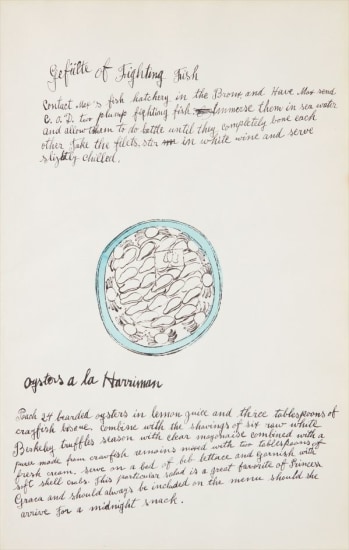 Gefülte of Fighting Fish
Contact Max's fish hatchery in the Bronx and Have Max send
C.O.D. two plump fighting fish. Immerse them in sea water
and allow them to do battle until they completely bone each
other. Take the filets, stew in white wine and serve
slightly chilled.
Oysters a la Harriman
Poach 24 bearded oysters in lemon juice and three tablespoons of
crayfish cosene. Combine with the shavings of six raw white
Berkeley truffles season with clear mayonaise combined with a
puree made from crawfish remains mixed with two tablespoons of
fresh cream. Serve on a bed of bib lettace and garnish with
soft shell crabs. This particular salad is a great favorite of Princess
Graca and should always be included on the menu should she
arrive for a midnight snack.